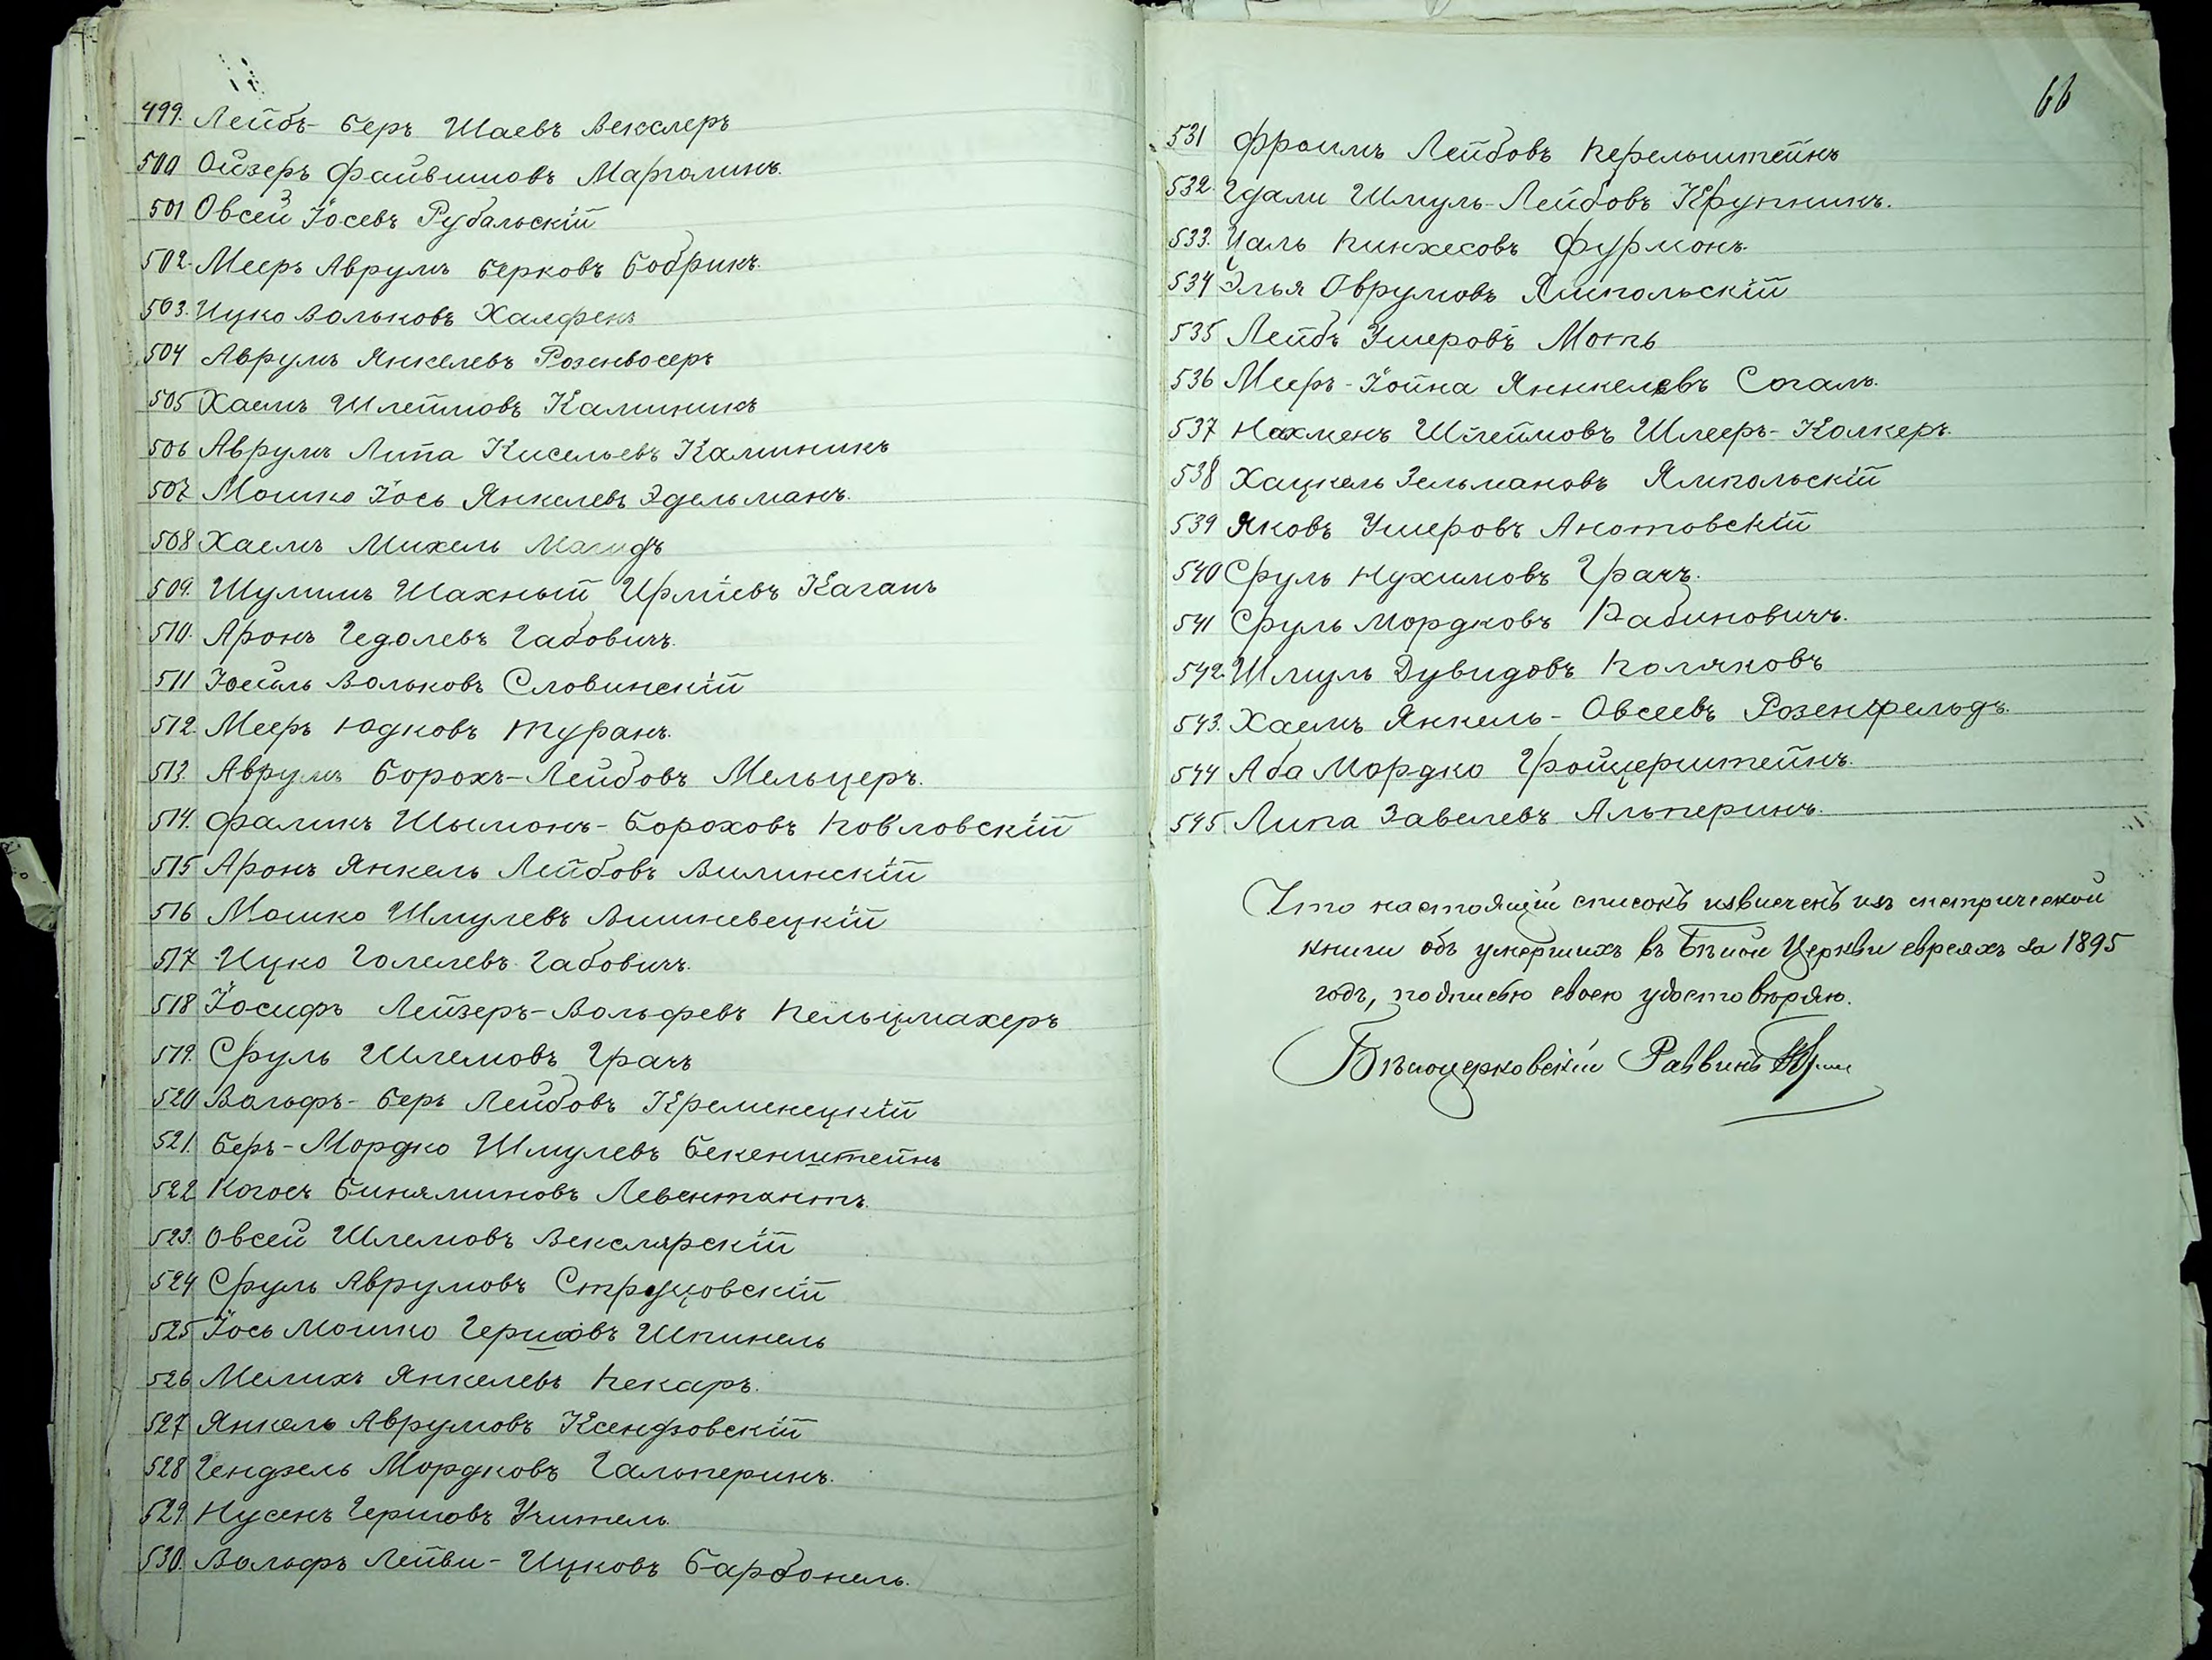 499. Лейбъ-Беръ Шаевъ Векслеръ
500 Ойзеръ Файвишовъ Марголинъ.
501 Овсей Іосевъ Рубальскій
502. Мееръ Аврумъ Берковъ Бобрикъ.
503. Ицко Вольковъ Халфенъ
504 Аврумъ Янкелевъ Розенвосеръ
505 Хаемъ Шлеймовъ Калиникъ
506 Аврумъ Липа Кисельевъ Калиникъ
507 Мошко Іось Янкелевъ Эдельманъ.
508 Хаемъ Михель Магидъ
509. Шулимъ Шахный Ирміевъ Каганъ
510. Аронъ Гедолевъ Габовичъ.
511 Іосиль Вольковъ Словинскій
512. Мееръ Юдковъ Туранъ.
513. Аврумъ Борохъ-Лейбовъ Мельцеръ.
514. Фаликъ Шымонъ-Бороховъ Ковловскій
515 Аронъ Янкель Лейбовъ Вилинскій
516 Мошко Шмулевъ Вишневецкій
517 Ицко Голелевъ Габовичъ.
518 Іосифъ Лейзеръ-Вольфевъ Пельцмахеръ
519. Сруль Шлемовъ Грачъ
520 Вольфъ-Беръ Лейбовъ Кременецкій
521. Беръ-Мордко Шмулевъ Бекенштейнъ
522 Когосъ Биняминовъ Левентантъ.
523. Овсей Шлемовъ Векслярскій
524 Сруль Аврумовъ Струцовскій
525 Іось Мошко Гершовъ Шпинель
526 Мелихъ Янкелевъ Пекаръ.
527 Янкель Аврумовъ Ксендзовскій
528 Гендзель Мордковъ Гальперинъ.
529. Нусенъ Гершовъ Учитель.
530. Вольфъ Лейви-Ицковъ Барбонель.
66
531 Фроимъ Лейбовъ Перельштейнъ
532. Гдали Шмуль-Лейбовъ Крупникъ.
533. Цаль Пинхесовъ Фурмонъ.
534 Элья Оврумовъ Ямпольскій
535 Лейбъ Ушеровъ Моть
536 Мееръ-Іойна Яннкелевъ Согалъ.
537 Нахменъ Шлеймовъ Шлееръ-Колкеръ.
538 Хацкель Зельмановъ Ямпольскій
539 Яковъ Ушеровъ Анотовскій
540 Сруль Нухимовъ Грачъ.
541 Сруль Мордковъ Рабиновичъ.
542. Шмуль Дувидовъ Поляковъ
543. Хаемъ Янкель-Овсеевъ Розенфельдъ.
544 Аба Мордко Гройцерштейнъ.
545. Липа Завелевъ Альперинъ.
Что настоящій списокъ извлеченъ изъ метрической
книги объ умершихъ въ Бѣлой Церкви евреяхъ за 1895
годъ, подписью своею удостовѣряю.
Бѣлоцерковскій Раввинъ